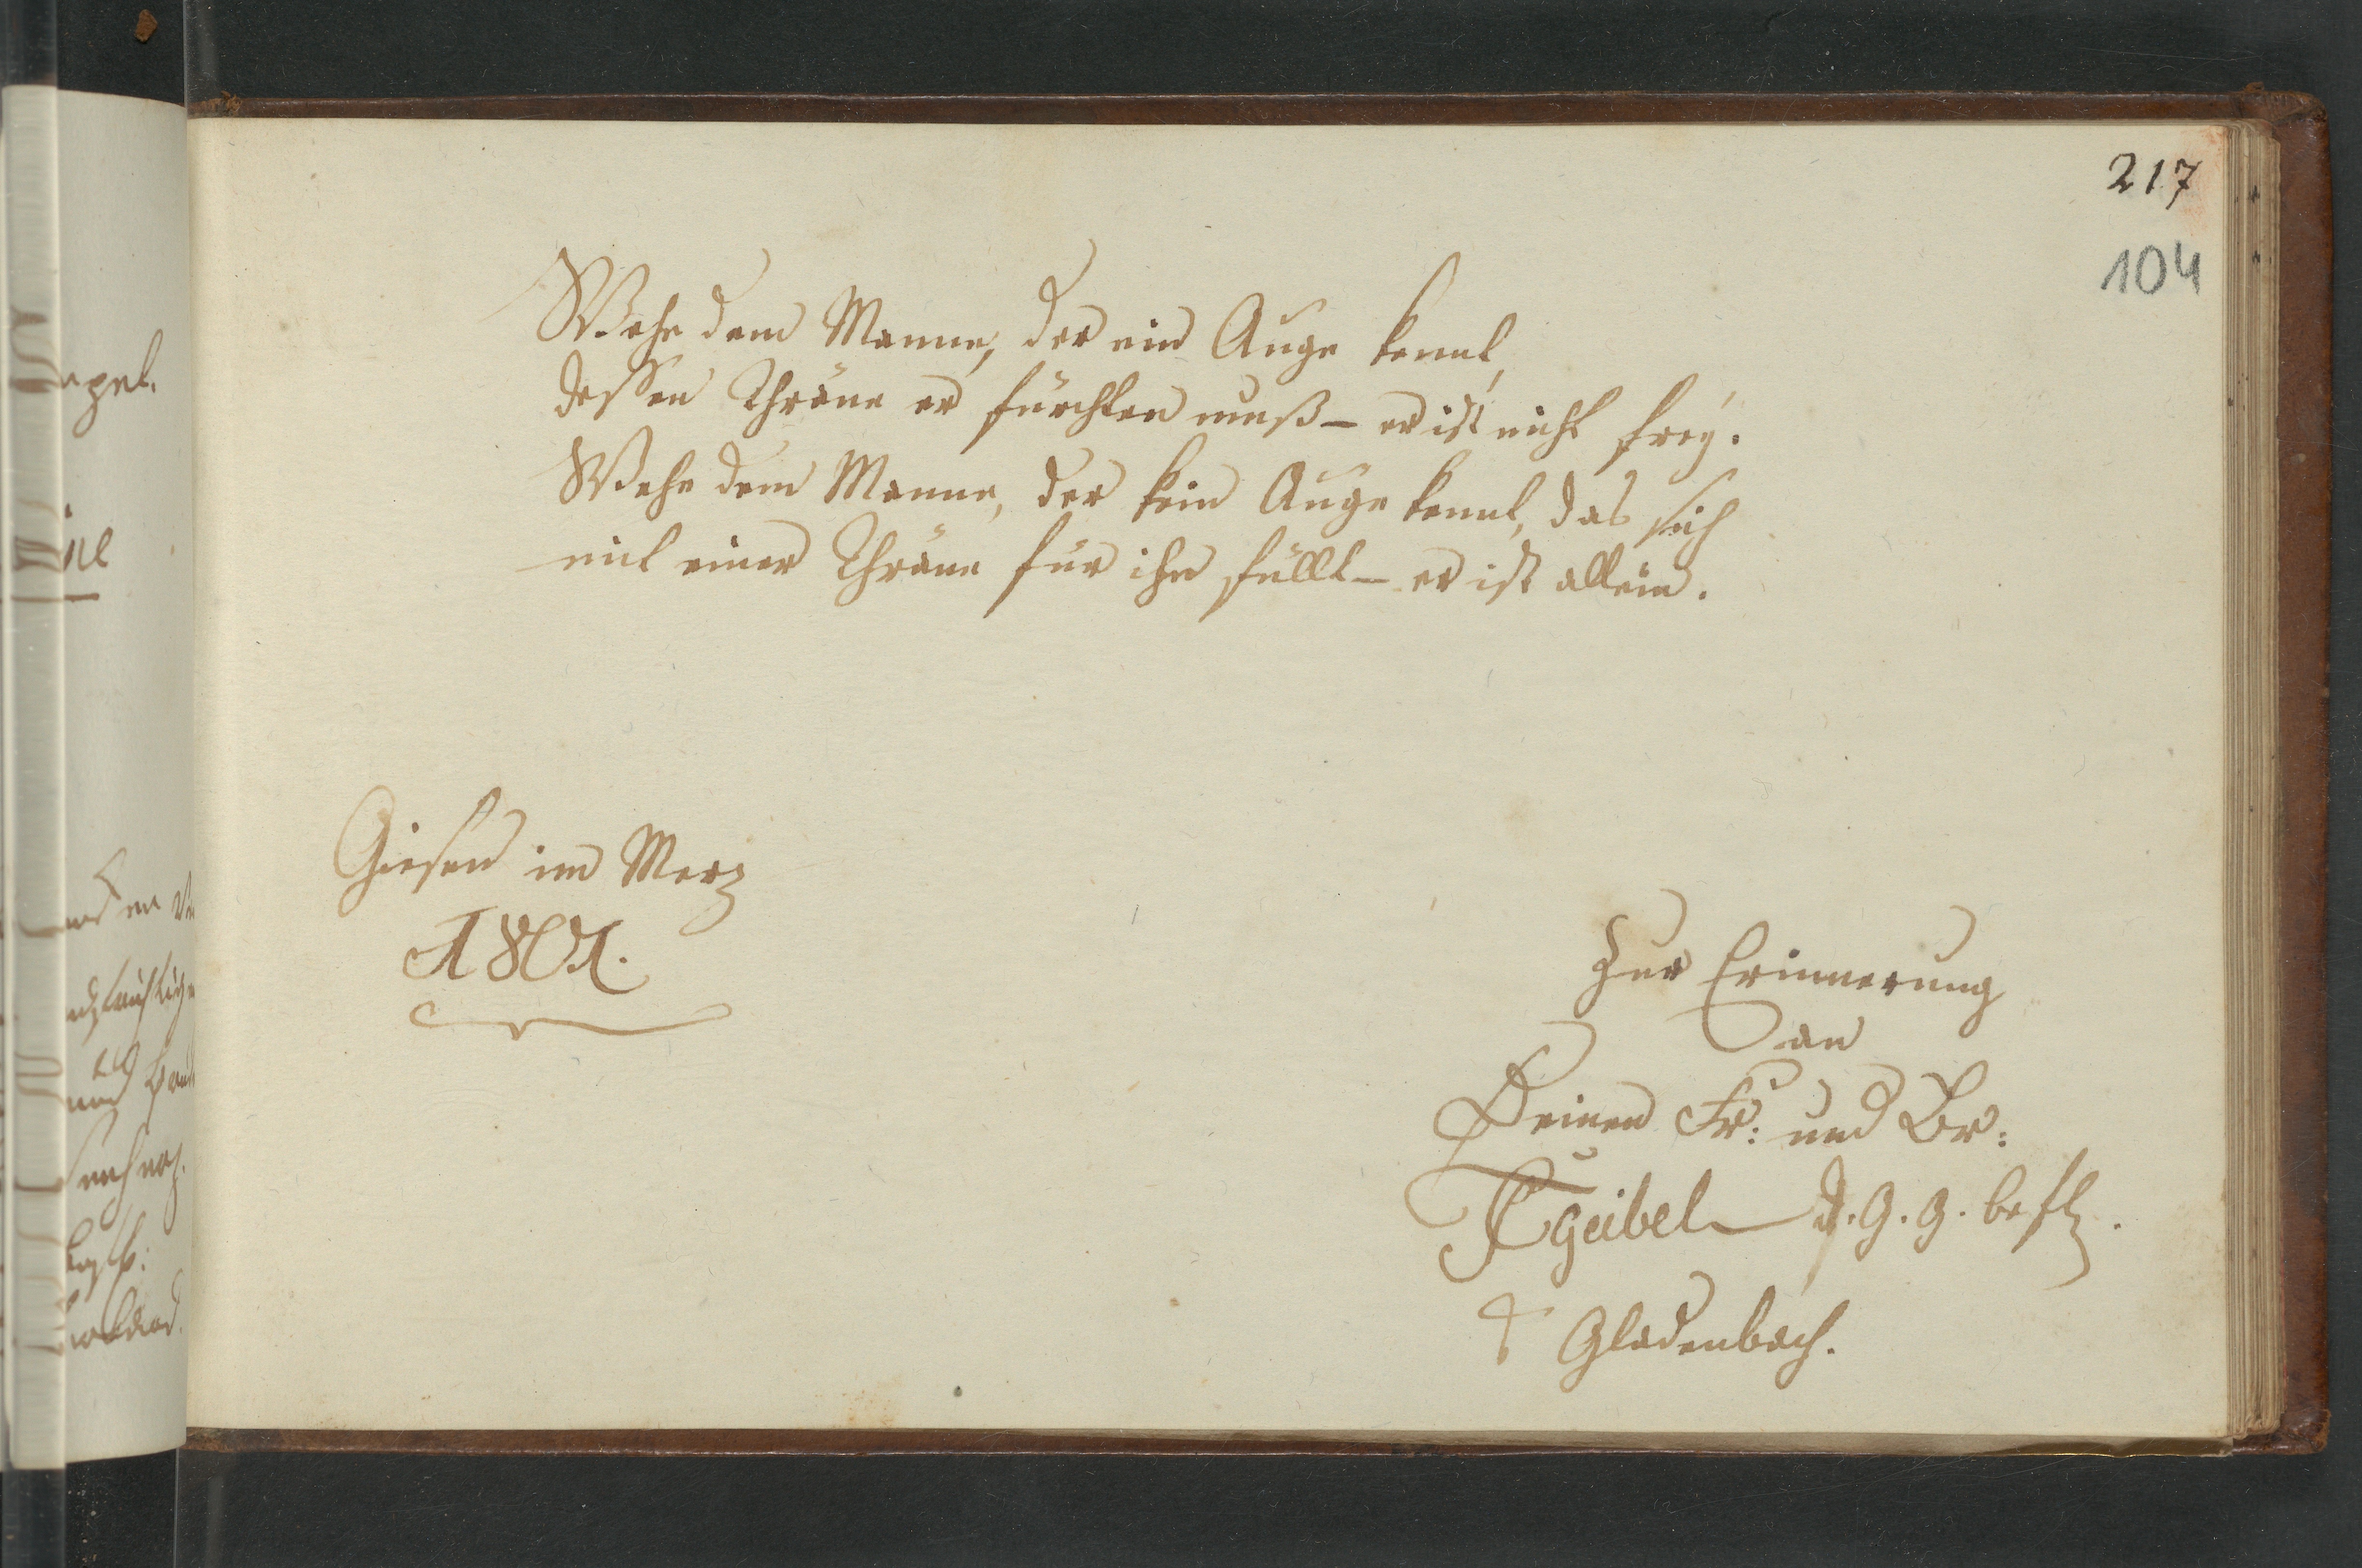 217
104
Wehe dem Manne, der ein Auge kennt,
dessen Thräne er fürchten muß – er ist nicht frey.
Wehe dem Manne, der kein Auge kennt, das sich
mit einer Thräne für ihn füllt – er ist allein.
Giesen im Merz
1801.
Zur Erinnerung
an
Deinen Fr: und Br:
Geibel d. G. G. befl.
Gladenbach.